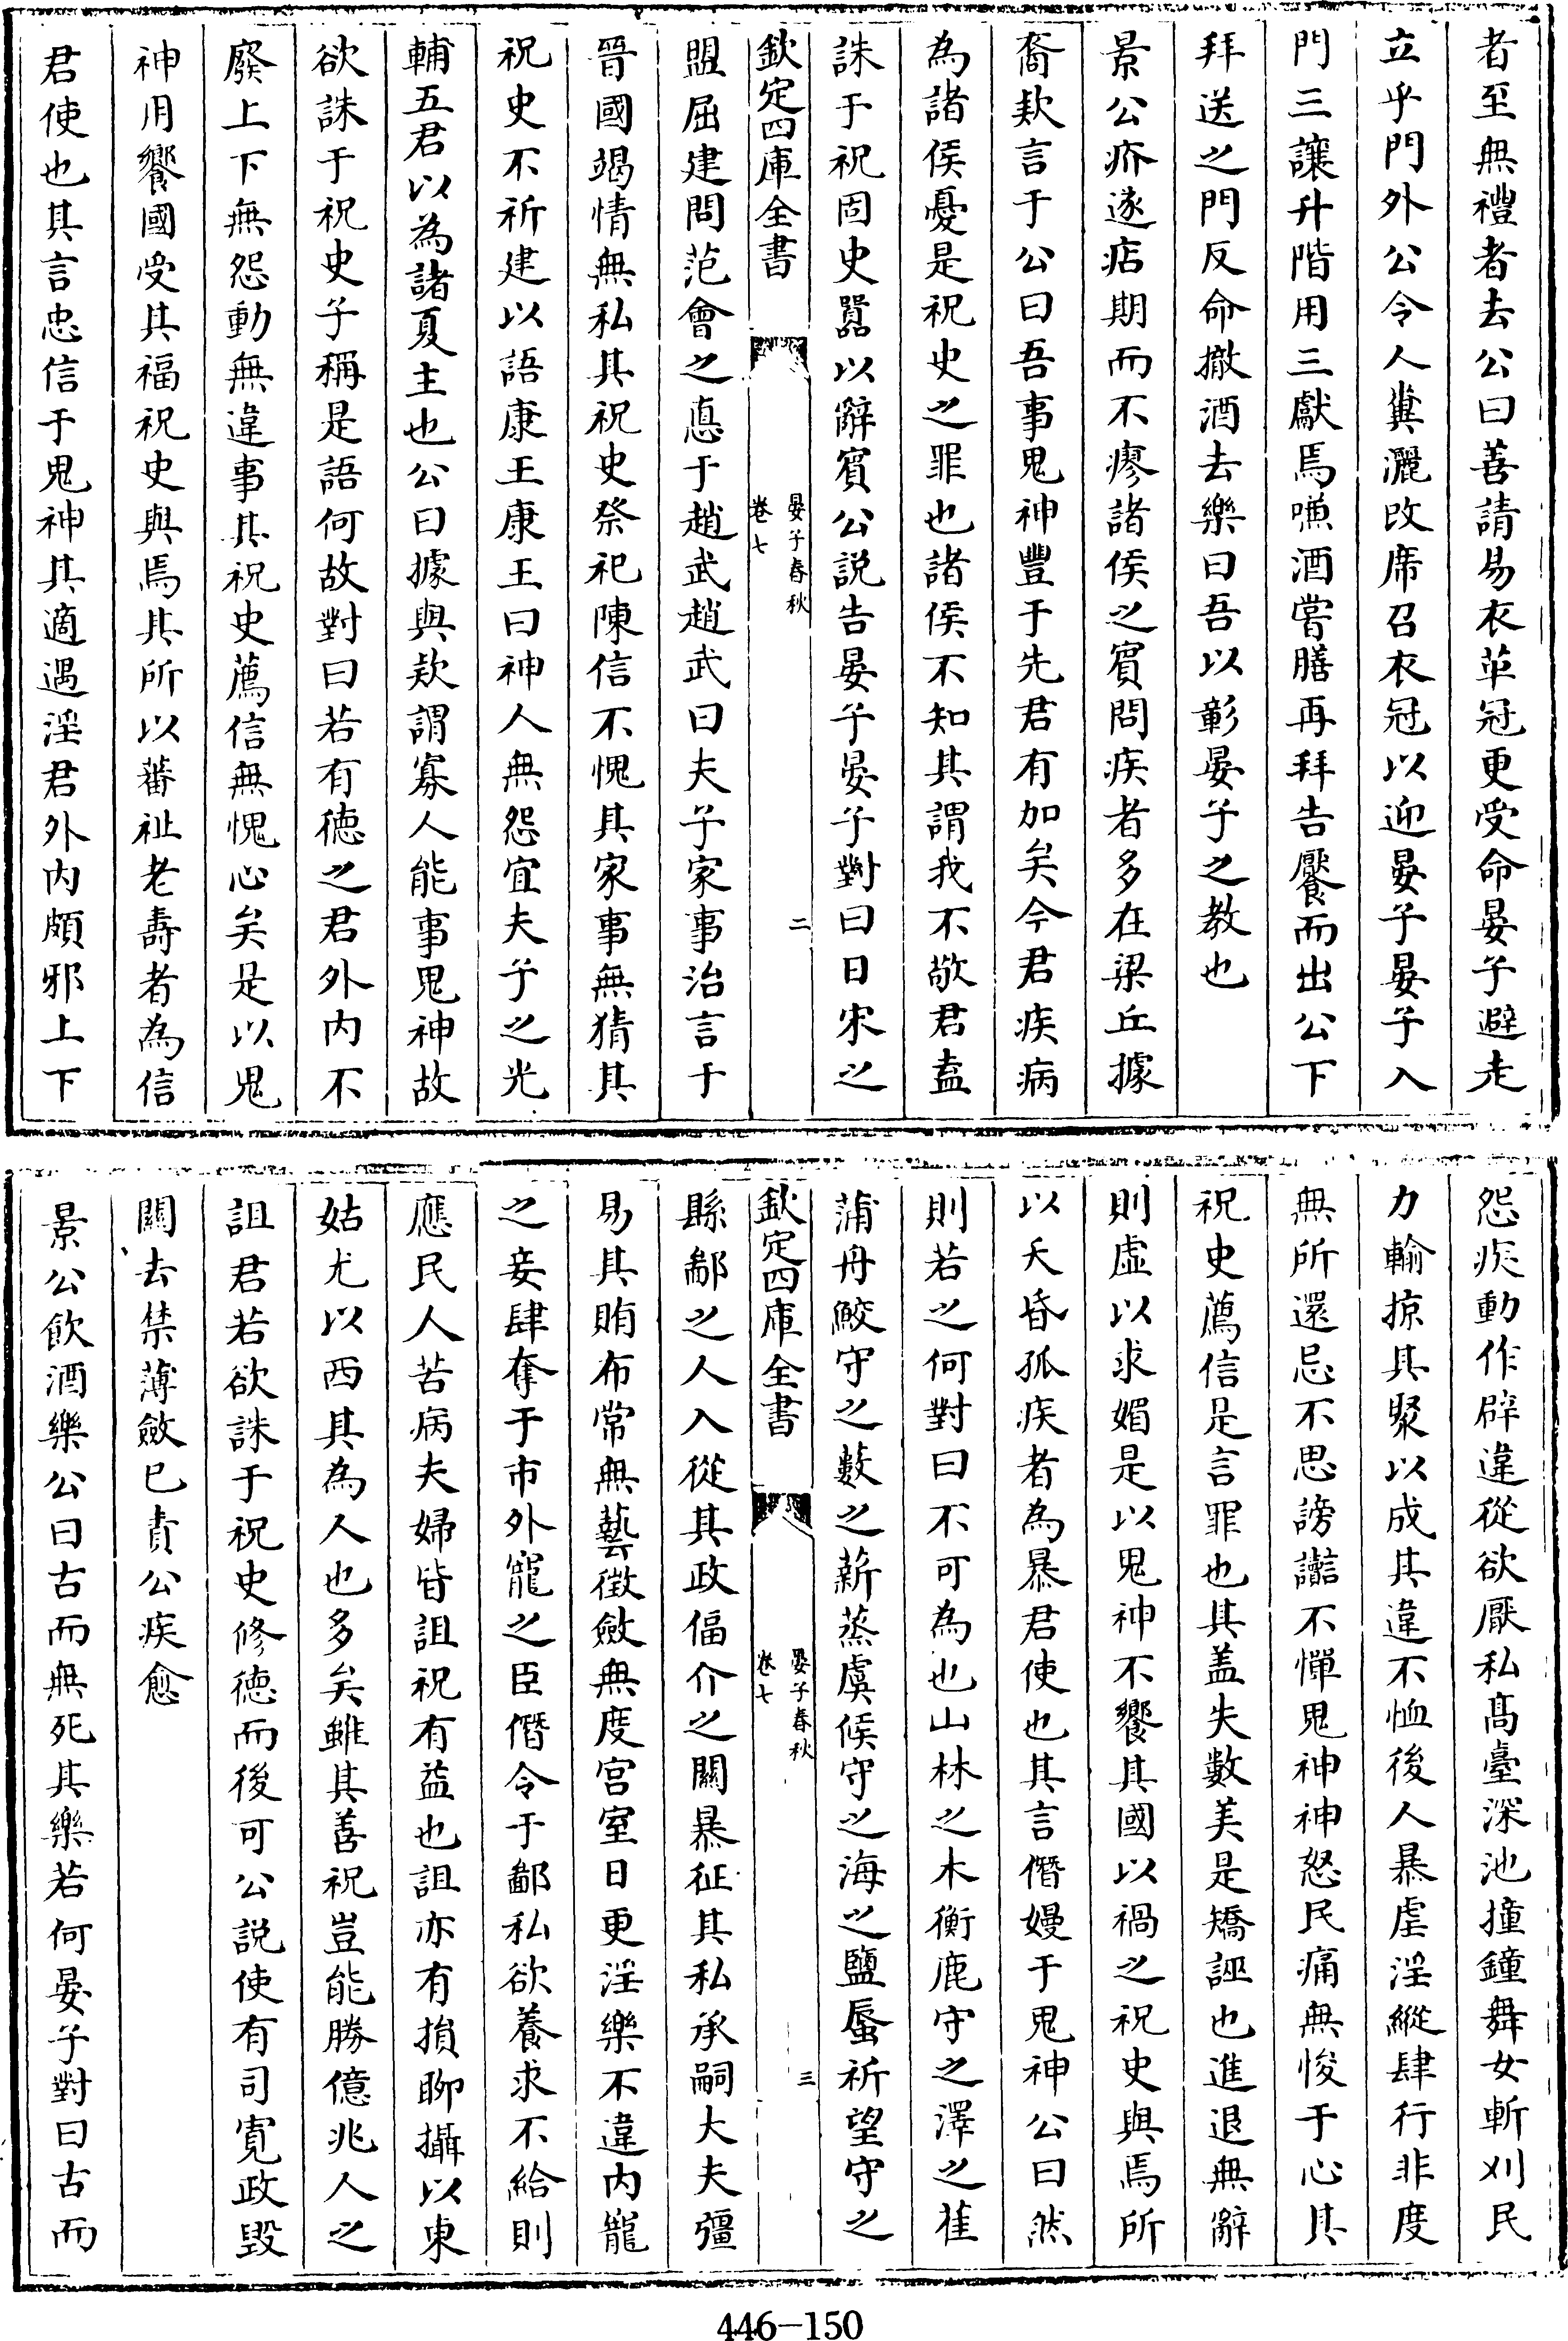 者至無禮者去公曰善請易衣革冠更受命晏子避走
立乎門外公令人糞灑改席召衣冠以迎晏子晏子入
門三讓升階用三獻焉嗛酒嘗膳再拜告饜而出公下
拜送之門反命撤酒去樂曰吾以彰晏子之教也
景公疥遂痁期而不瘳諸侯之賓問疾者多在梁丘據
裔欵言于公曰吾事鬼神豐于先君有加矣今君疾病
為諸侯憂是祝史之罪也諸侯不知其謂我不敬君盍
誅于祝固史嚚以辭賓公説告晏子晏子對曰日宋之
欽定四庫全書
晏子春秋
卷七
二
盟屈建問范會之悳于趙武趙武曰夫子家事治言于
晉國竭情無私其祝史祭祀陳信不愧其家事無猜其
祝史不祈建以語康王康王曰神人無怨宜夫子之光
輔五君以為諸夏主也公曰據與欵謂寡人能事鬼神故
欲誅于祝史子稱是語何故對曰若有德之君外内不
廢上下無怨動無違事其祝史薦信無愧心矣是以鬼
神用饗國受其福祝史與焉其所以蕃祉老壽者為信
君使也其言忠信于鬼神其適遇淫君外内頗邪上下
怨疾動作辟違從欲厭私髙臺深池撞鐘舞女斬刈民
力輸掠其聚以成其違不恤後人暴虐淫縱肆行非度
無所還忌不思謗讟不憚鬼神神怒民痛無悛于心其
祝史薦信是言罪也其盖失數美是矯誣也進退無辭
則虚以求媚是以鬼神不饗其國以禍之祝史與焉所
以夭昏孤疾者為暴君使也其言僭嫚于鬼神公曰然
則若之何對曰不可為也山林之木衡鹿守之澤之萑
蒲舟鮫守之藪之薪蒸虞候守之海之鹽蜃祈望守之
欽定四庫全書
晏子春秋
卷七
三
縣鄙之人入從其政偪介之關暴征其私承嗣大夫彊
易其賄布常無藝徴斂無度宫室日更淫樂不違内寵
之妾肆奪于市外寵之臣僭令于鄙私欲養求不給則
應民人苦病夫婦皆詛祝有益也詛亦有損聊攝以東
姑尤以西其為人也多矣雖其善祝豈能勝億兆人之
詛君若欲誅于祝史修德而後可公説使有司寛政毁
關去禁薄斂已責公疾愈
景公飲酒樂公曰古而無死其樂若何晏子對曰古而
446-150